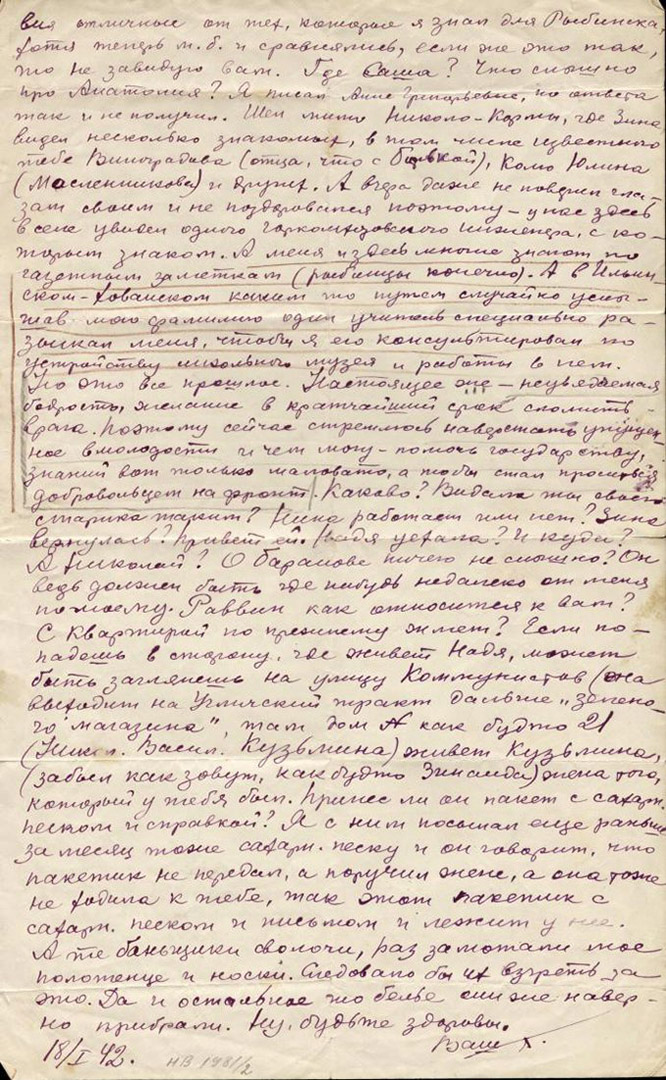 вия отличные от тех, которые я знал для Рыбинска,
хотя теперь м.б. и сравнялись, если же это так,
то не завидую вам. Где Саша? Что слышно
про Анатолия? Я писал Анне Григорьевне, но ответа
так и не получил. Шел мимо Николо-Кормы, где Зина
видел несколько знакомых, в том числе известного
тебе Виноградова (отца, что с), Колю Юлина
(Масленникова) и других. А вчера даже не поверил гла-
зам своим и не поздоровался поэтому – у нас здесь
в селе увидел одного горкомхозовского инженера, с ко-
торым знаком. А меня и здесь многие знают по
газетным заметкам (рыбинцы конечно). А в Ильин-
ском-Хованском каким то путем случайно услы-
шав мою фамилию один учитель специально ра-
зыскал меня, чтобы я его консультировал по
устройству школьного музея и работы в нем.
Но это все прошлое. Настоящее же – неувядаемая
бодрость, желание в кратчайший срок сломить
врага. Поэтому сейчас стремлюсь наверстать упущен-
ное в молодости и чем могу – помочь государству,
знаний вот только маловато, а то бы стал проситься
добровольцем на фронт. Каково? Видала ты своего
старика таким? Нина работает или нет? Зина
вернулась? Привет ей. Надя уехала? И куда?
А Николай? О Баранове ничего не слышно? Он
ведь должен быть где нибудь недалеко от меня
по моему. Раввин как относится к вам?
С квартирой по прежнему жмет? Если по-
падешь в сторону, где живет Надя, может
быть заглянешь на улицу Коммунистов (она
выходит на Угличский тракт дальше „зелено-
го магазина", там дом № как будто 21
(Никол. Васил. Кузьмина) живет Кузьмина,
(забыл как зовут, как будто Зинаида) жена того,
который у тебя был. Принес ли он пакет с сахарн.
песком и справкой? Я с ним посылал еще раньше
за месяц тоже сахарн. песку и он говорит, что
пакетик не передал, а поручил жене, а она тоже
не ходила к тебе, так этот пакетик с
сахарн. песком и письмом и лежит у нее.
А те баньщики сволочи, раз замотали мое
полотенце и носки. Следовало бы их взгреть за
это. Да и остальное то белье они же навер-
но прибрали. Ну, будьте здоровы.
Ваш
18/I 42. НВ 1981/2